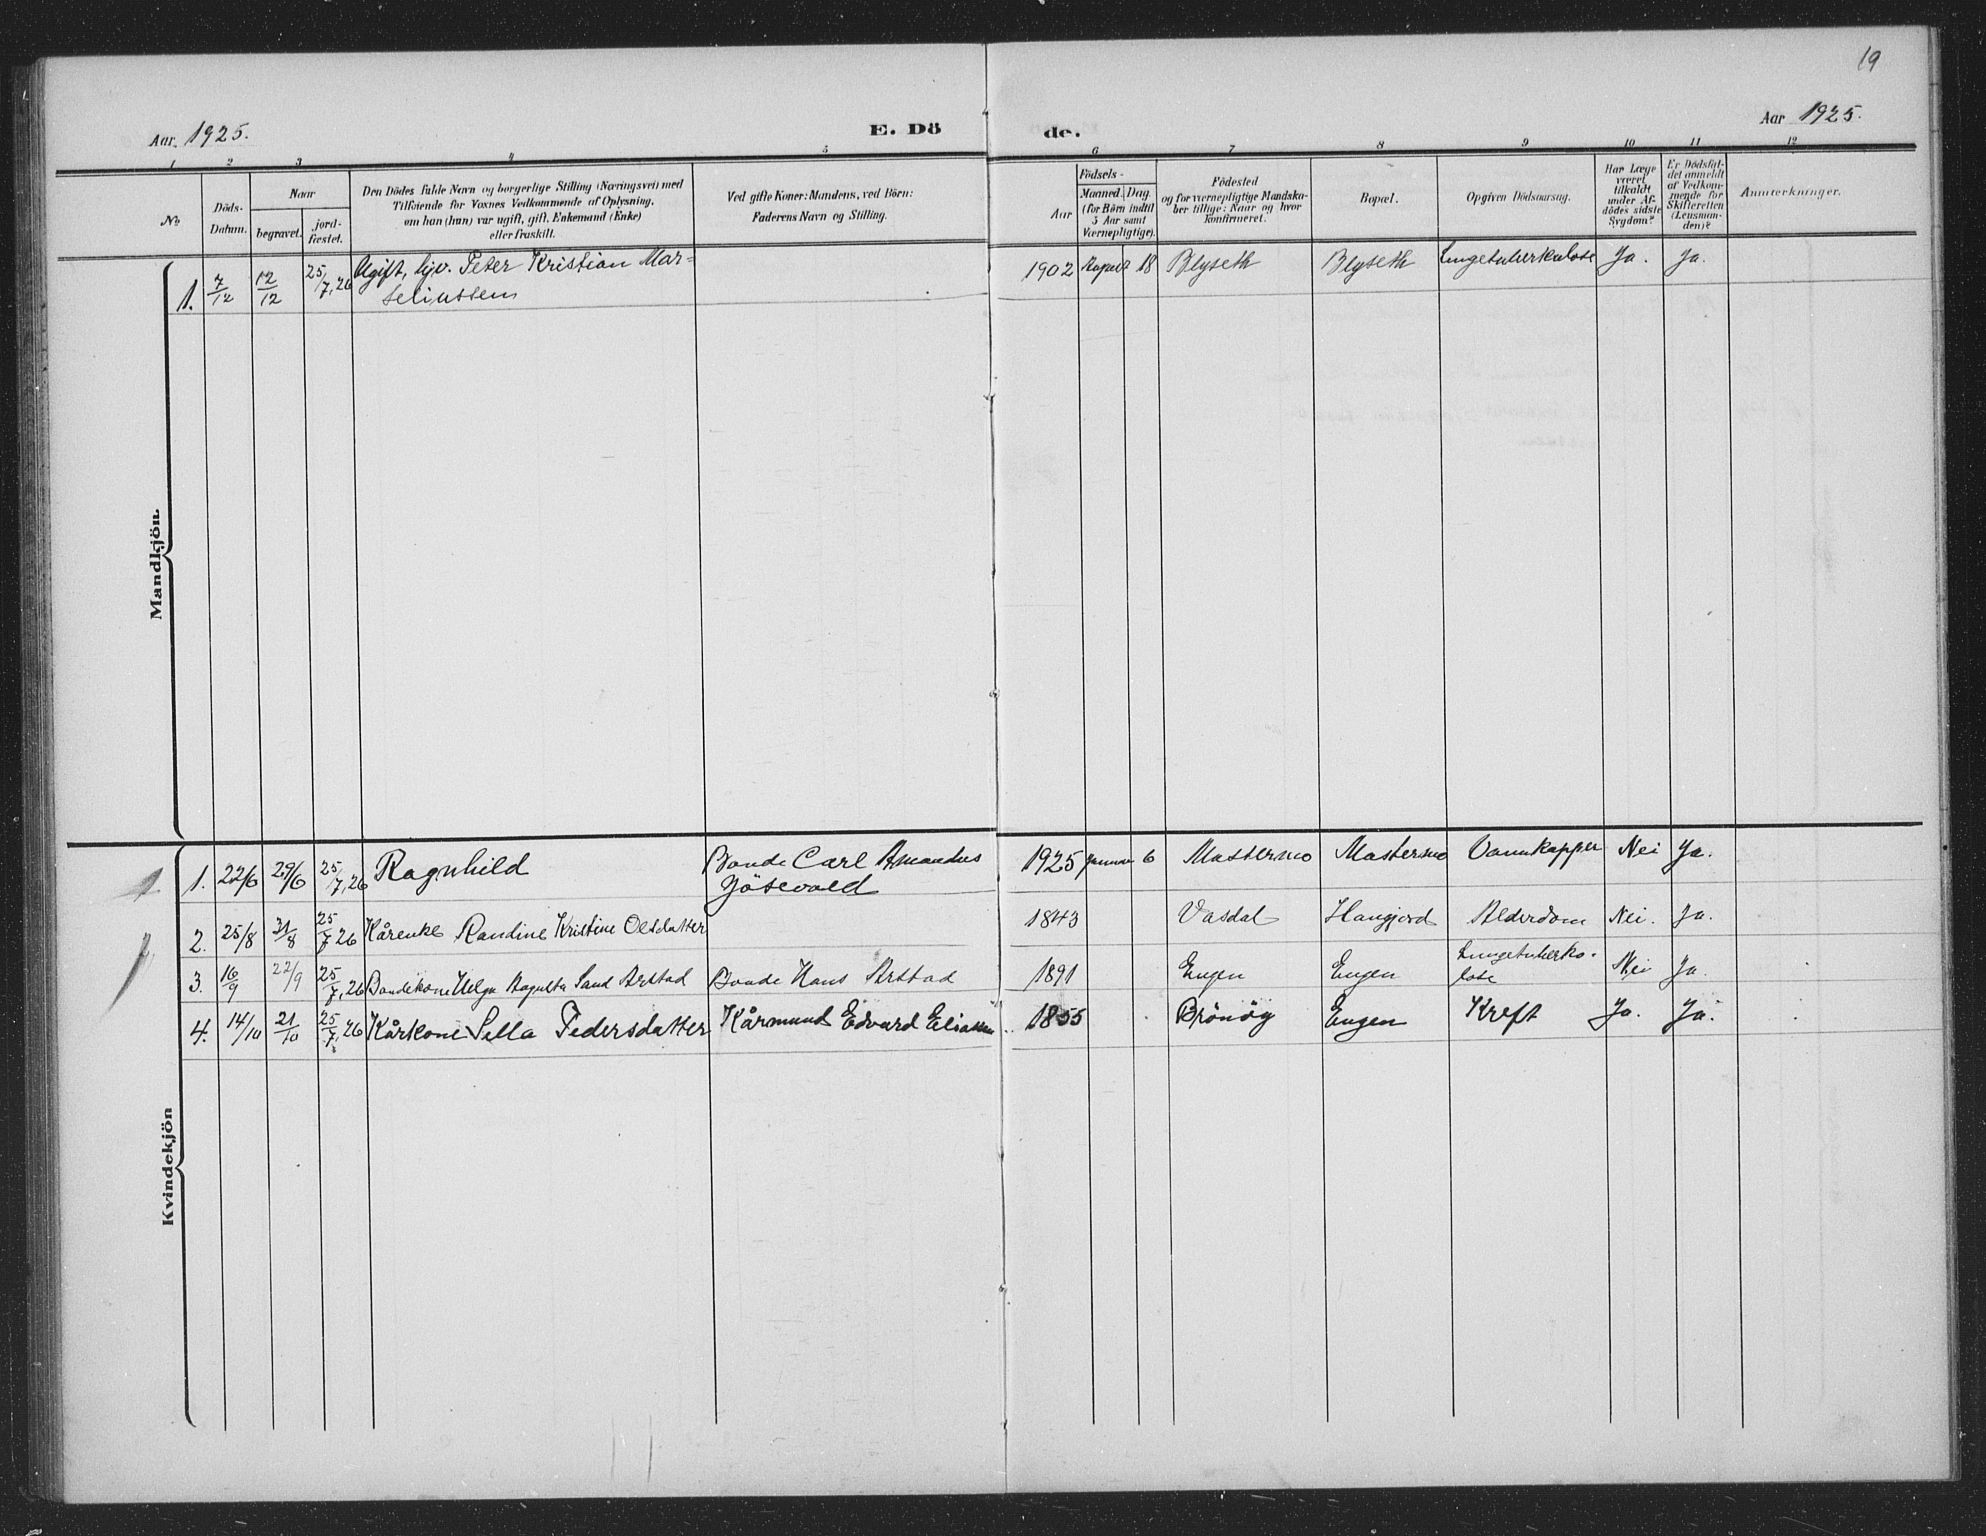 19
Aar. 1925.
E. Dö
de.
Aar 1925.
1 2 3 4 5 6 7 8 9 10 11 12
No.
Döds-
Datum.
Naar
begravet.
jord-
fæstet.
Den Dödes fulde Navn og borgerlige Stilling (Næringsvei) med
Tilföiende for Voxnes Vedkommende af Oplysning,
om han (hun) var ugift, gift, Enkemand (Enke)
eller fraskilt.
Ved gifte Koner: Mandens, ved Börn:
Faderens Navn og Stilling.
Födsels-
Aar
Maaned. Dag.
(for Börn indtil
5 Aar samt
Værnepligtige).
Födested
og for værnepligtige Mandska-
ber tillige: Naar og hvor
konfirmeret.
Bopæl.
Opgiven Dödsaarsag.
Har Læge
været
tilkaldt
under Af-
dödes sidste
Sygdom?
Er Dödsfal-
det anmeldt
af Vedkom-
mende for
Skifteretten
(Lensman-
den)?
Anmærkninger.
Mandkjön.
1. 7/12 12/12 25/7, 26 Ugift, Peter Kristian Mar-
seliussen
1902 August 18 Blyseth Blyseth Lungetuberkulose Ja. Ja.
Kvindekjön
1. 22/6 29/6 25/7, 26 Ragnhild Bonde Carl Amandus
1925 Januar 6 Mastermo Mastermo Nei Ja.
2. 25/8 31/8 25/7 26 Kårenke Randine Kristine Olsdatter 1843 Vasdal Hangjord Alderdom Nei. Ja.
3. 16/9 22/9 25/7, 26 Bondekone Helga Augusta Sand Arstad Bonde Hans Arstad 1891 Engen Engen Lungetuberku-
lose Nei Ja.
4. 14/10 21/10 25/7, 26 Kårkone Sella Pedersdatter Kårmand Edvard Eliassen 1855 Brönöy Engen Kreft Ja. Ja.